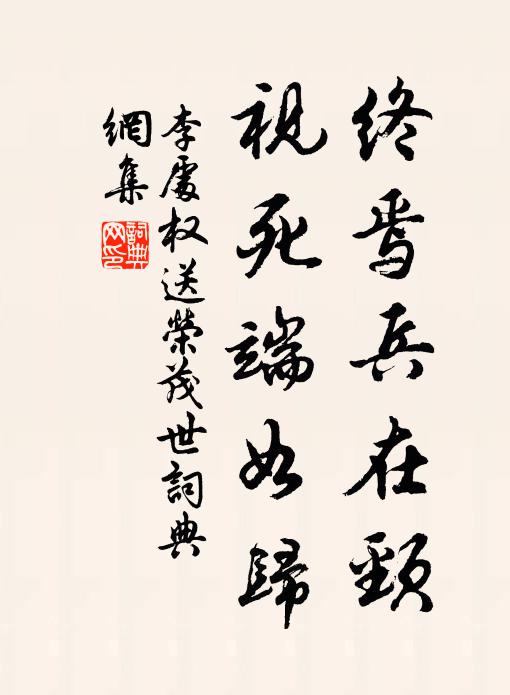 終焉兵在頸
視死端如歸
李處权送榮茂世詞典
網集
詞典
网印